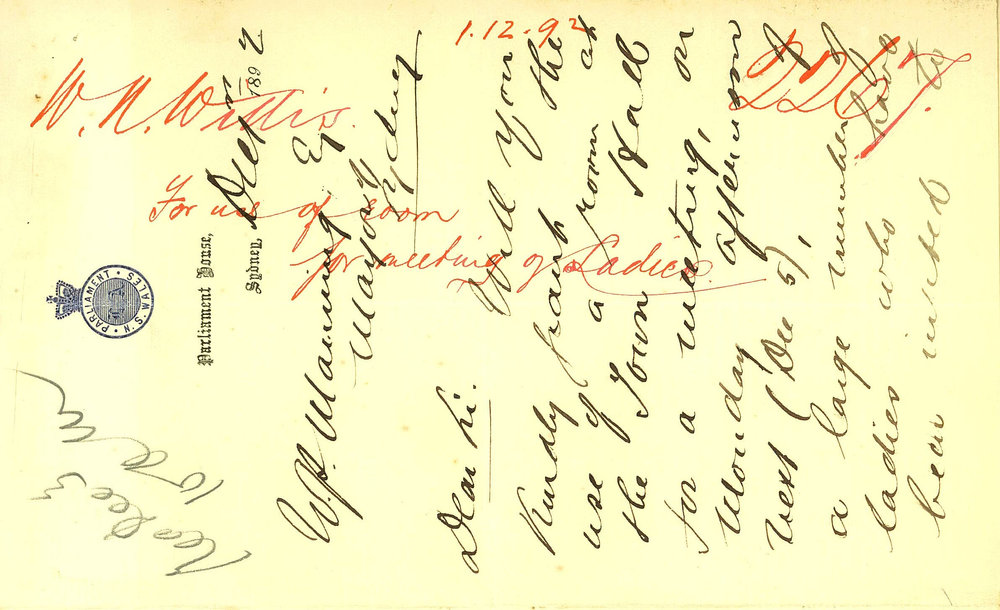 1.12.92
W. N. Willis.
2267.
For use of room
for meeting of Ladies.
PARLIAMENT · N.S. WALES
Parliament House,
Sydney, Dec 1 1892
W.P. Manning Esq
Mayor
Sydney
Dear Sir.
Will you
Kindly grant the
use of a room at
the Town Hall
for a meeting, on
Monday afternoon
next (Dec 5), of
a large number of
ladies who have
been invited to